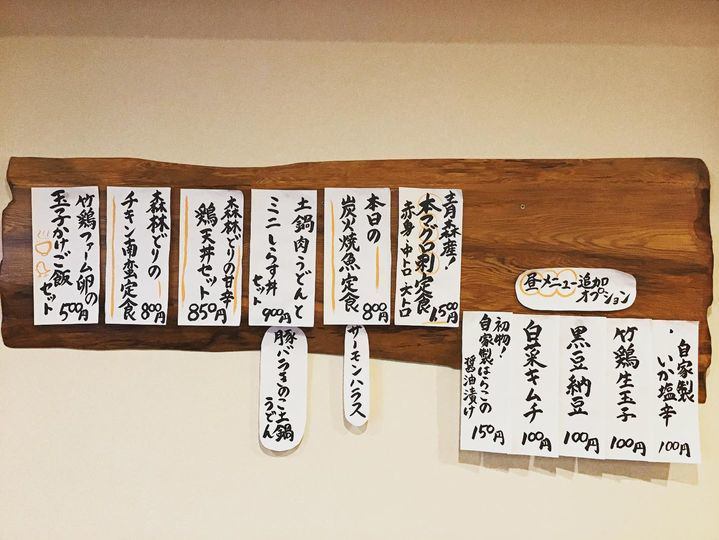 青森産!
本マグロ刺定食
赤身・中トロ・大トロ
1,500円
本日の
炭火焼魚定食
800円
サーモンハラス
土鍋肉うどんと
ミニしらす丼
セット
900円
豚バラきのこ土鍋
うどん
森林どりの甘辛
鶏天丼セット
850円
森林どりの
チキン南蛮定食
800円
竹鶏ファーム卵の
玉子かけご飯
セット
500円
昼メニュー追加
オプション
・自家製
いか塩辛
100円
竹鶏生玉子
100円
黒豆納豆
100円
白菜キムチ
100円
初物!
自家製はらこの
醤油漬け
150円